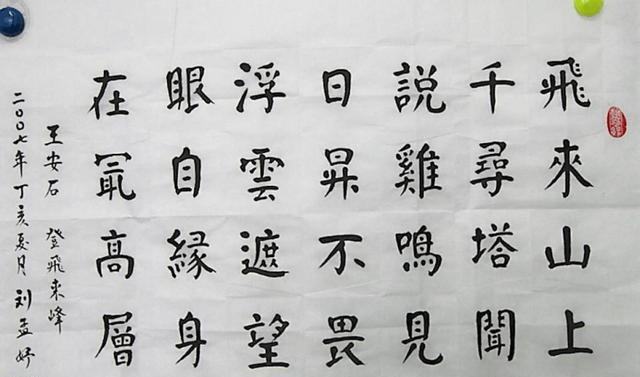 飛來山上
千尋塔聞
説雞鳴見
日昇不畏
浮雲遮望
眼自緣身
在冣高層
王安石 登飛來峰
二〇〇七年丁亥夏月 刘孟妤